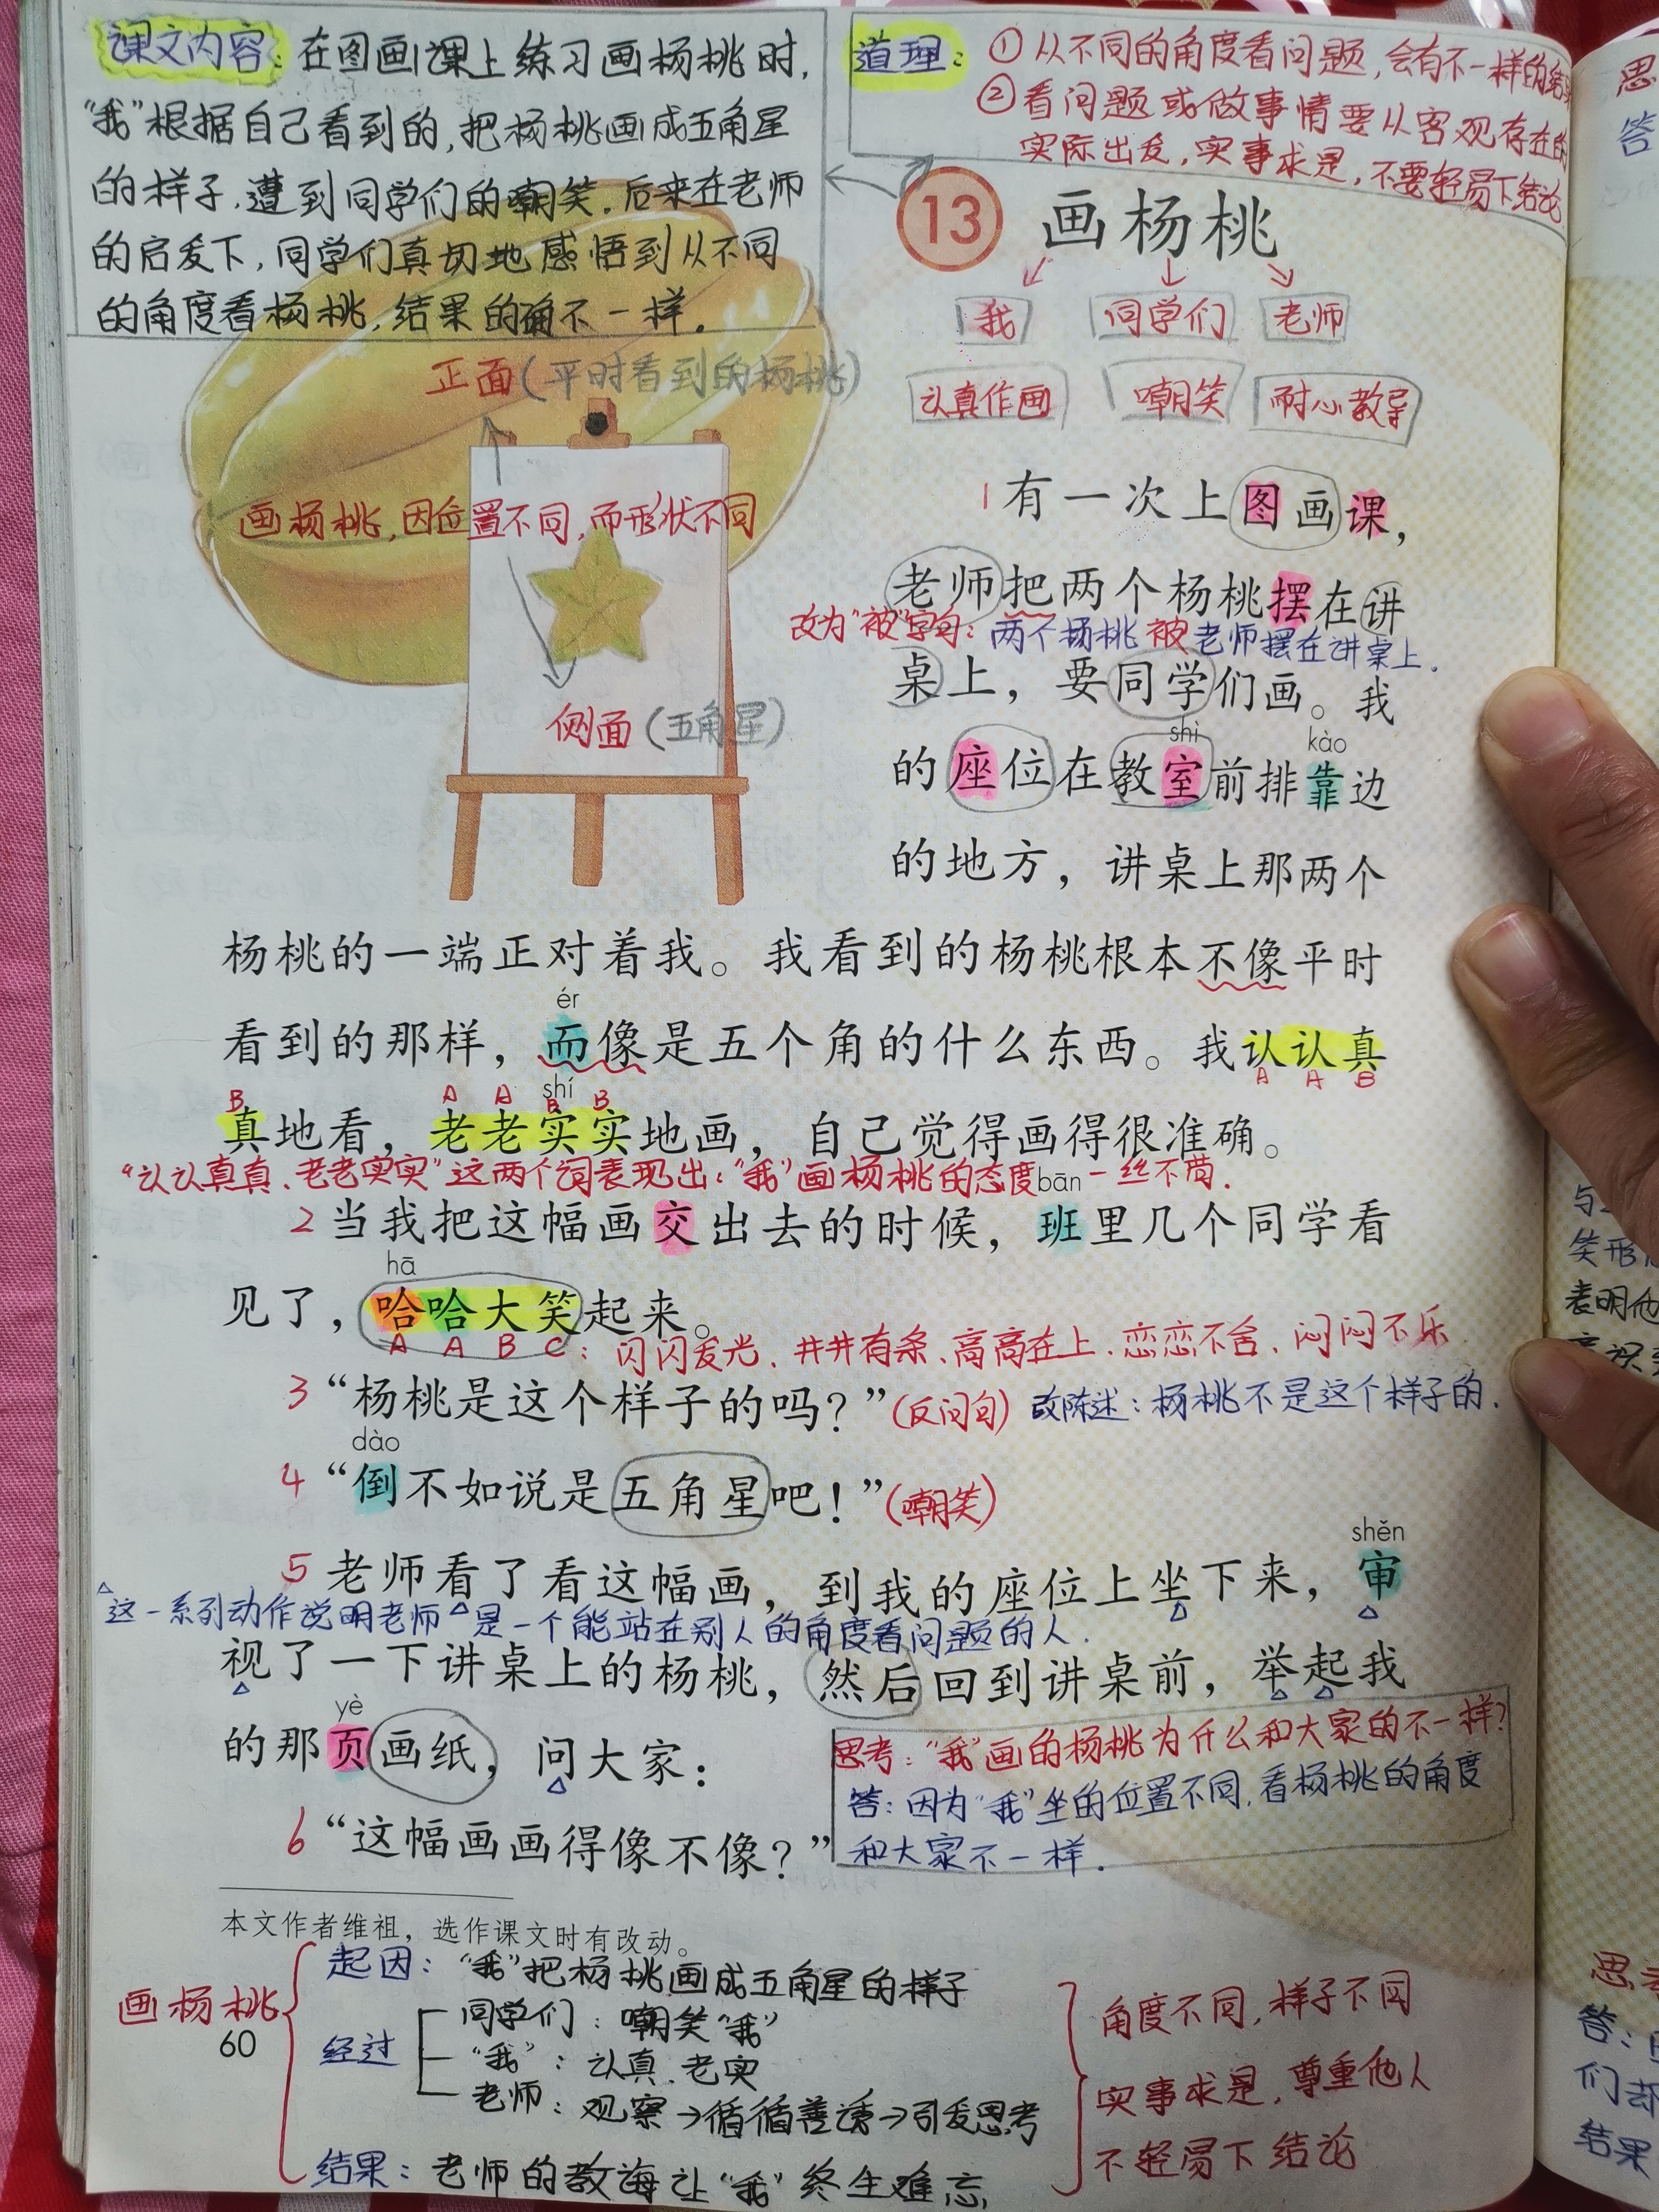 课文内容：在图画课上练习画杨桃时，
“我”根据自己看到的，把杨桃画成五角星
的样子，遭到同学们的嘲笑。后来在老师
的启发下，同学们真切地感悟到从不同
的角度看杨桃，结果的确不一样。
道理：①从不同的角度看问题，会有不一样的结果
②看问题或做事情要从客观存在的
实际出发，实事求是，不要轻易下结论
13 画杨桃
我 同学们 老师
认真作画 嘲笑 耐心教导
正面（平时看到的杨桃）
画杨桃，因位置不同，而形状不同
侧面（五角星）
1 有一次上图画课，
老师把两个杨桃摆在讲
改为“被”字句：两个杨桃被老师摆在讲桌上．
桌上，要同学们画。我
shì kào
的座位在教室前排靠边
的地方，讲桌上那两个
杨桃的一端正对着我。我看到的杨桃根本不像平时
ér
看到的那样，而像是五个角的什么东西。我认认真
A A B
shí
B A A B B
真地看，老老实实地画，自己觉得画得很准确。
“认认真真、老老实实”这两个词表现出：“我”画杨桃的态度一丝不苟．
bān
2 当我把这幅画交出去的时候，班里几个同学看
hā
见了，哈哈大笑起来。
A A B C：闪闪发光、井井有条、高高在上、恋恋不舍、闷闷不乐
3 “杨桃是这个样子的吗？”（反问句） 改陈述：杨桃不是这个样子的．
dào
4 “倒不如说是五角星吧！”（嘲笑）
shěn
5 老师看了看这幅画，到我的座位上坐下来，审
这一系列动作说明老师是一个能站在别人的角度看问题的人．
视了一下讲桌上的杨桃，然后回到讲桌前，举起我
yè
的那页画纸，问大家：
6 “这幅画画得像不像？”
思考：“我”画的杨桃为什么和大家的不一样？
答：因为“我”坐的位置不同，看杨桃的角度
和大家不一样．
本文作者维祖，选作课文时有改动。
画杨桃
起因：“我”把杨桃画成五角星的样子
经过
同学们：嘲笑“我”
“我”：认真、老实
老师：观察→循循善诱→引发思考
结果：老师的教诲让“我”终生难忘
角度不同，样子不同
实事求是，尊重他人
不轻易下结论
60
思
答
与
笑形
表明他
思考
答：
们却
结果